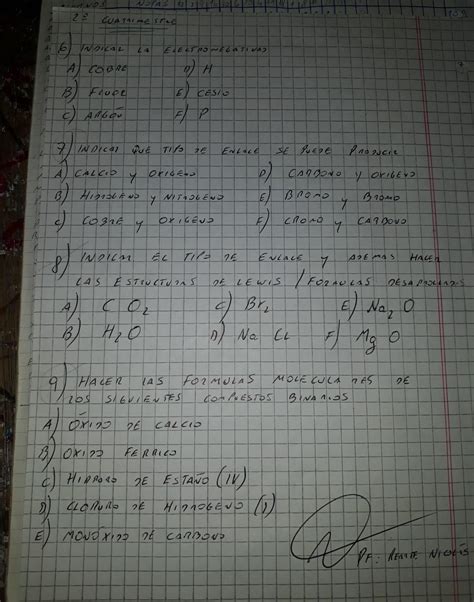 NOTAS
2º CUATRIMESTRE
6) INDICAR LA ELECTRONEGATIVIDAD
A) COBRE D) H
B) FLUOR E) CESIO
C) ARGÓN F) P
7) INDICAR QUE TIPO DE ENLACE SE PUEDE PRODUCIR
A) CALCIO y OXIGENO D) CARBONO y OXIGENO
B) HIDROGENO y NITROGENO E) BROMO y BROMO
C) COBRE y OXIGENO F) CROMO y CARBONO
8) INDICAR EL TIPO DE ENLACE y ADEMAS HACER
LAS ESTRUCTURAS DE LEWIS / FORMULAS DESARROLLADAS
A) CO₂ C) Br₂ E) Na₂O
B) H₂O D) NaCl F) MgO
9) HACER LAS FORMULAS MOLECULARES DE
LOS SIGUIENTES COMPUESTOS BINARIOS
A) ÓXIDO DE CALCIO
B) OXIDO FERRICO
C) HIDRURO DE ESTAÑO (IV)
D) CLORURO DE HIDROGENO (I)
E) MONÓXIDO DE CARBONO
PF: NICOLÁS